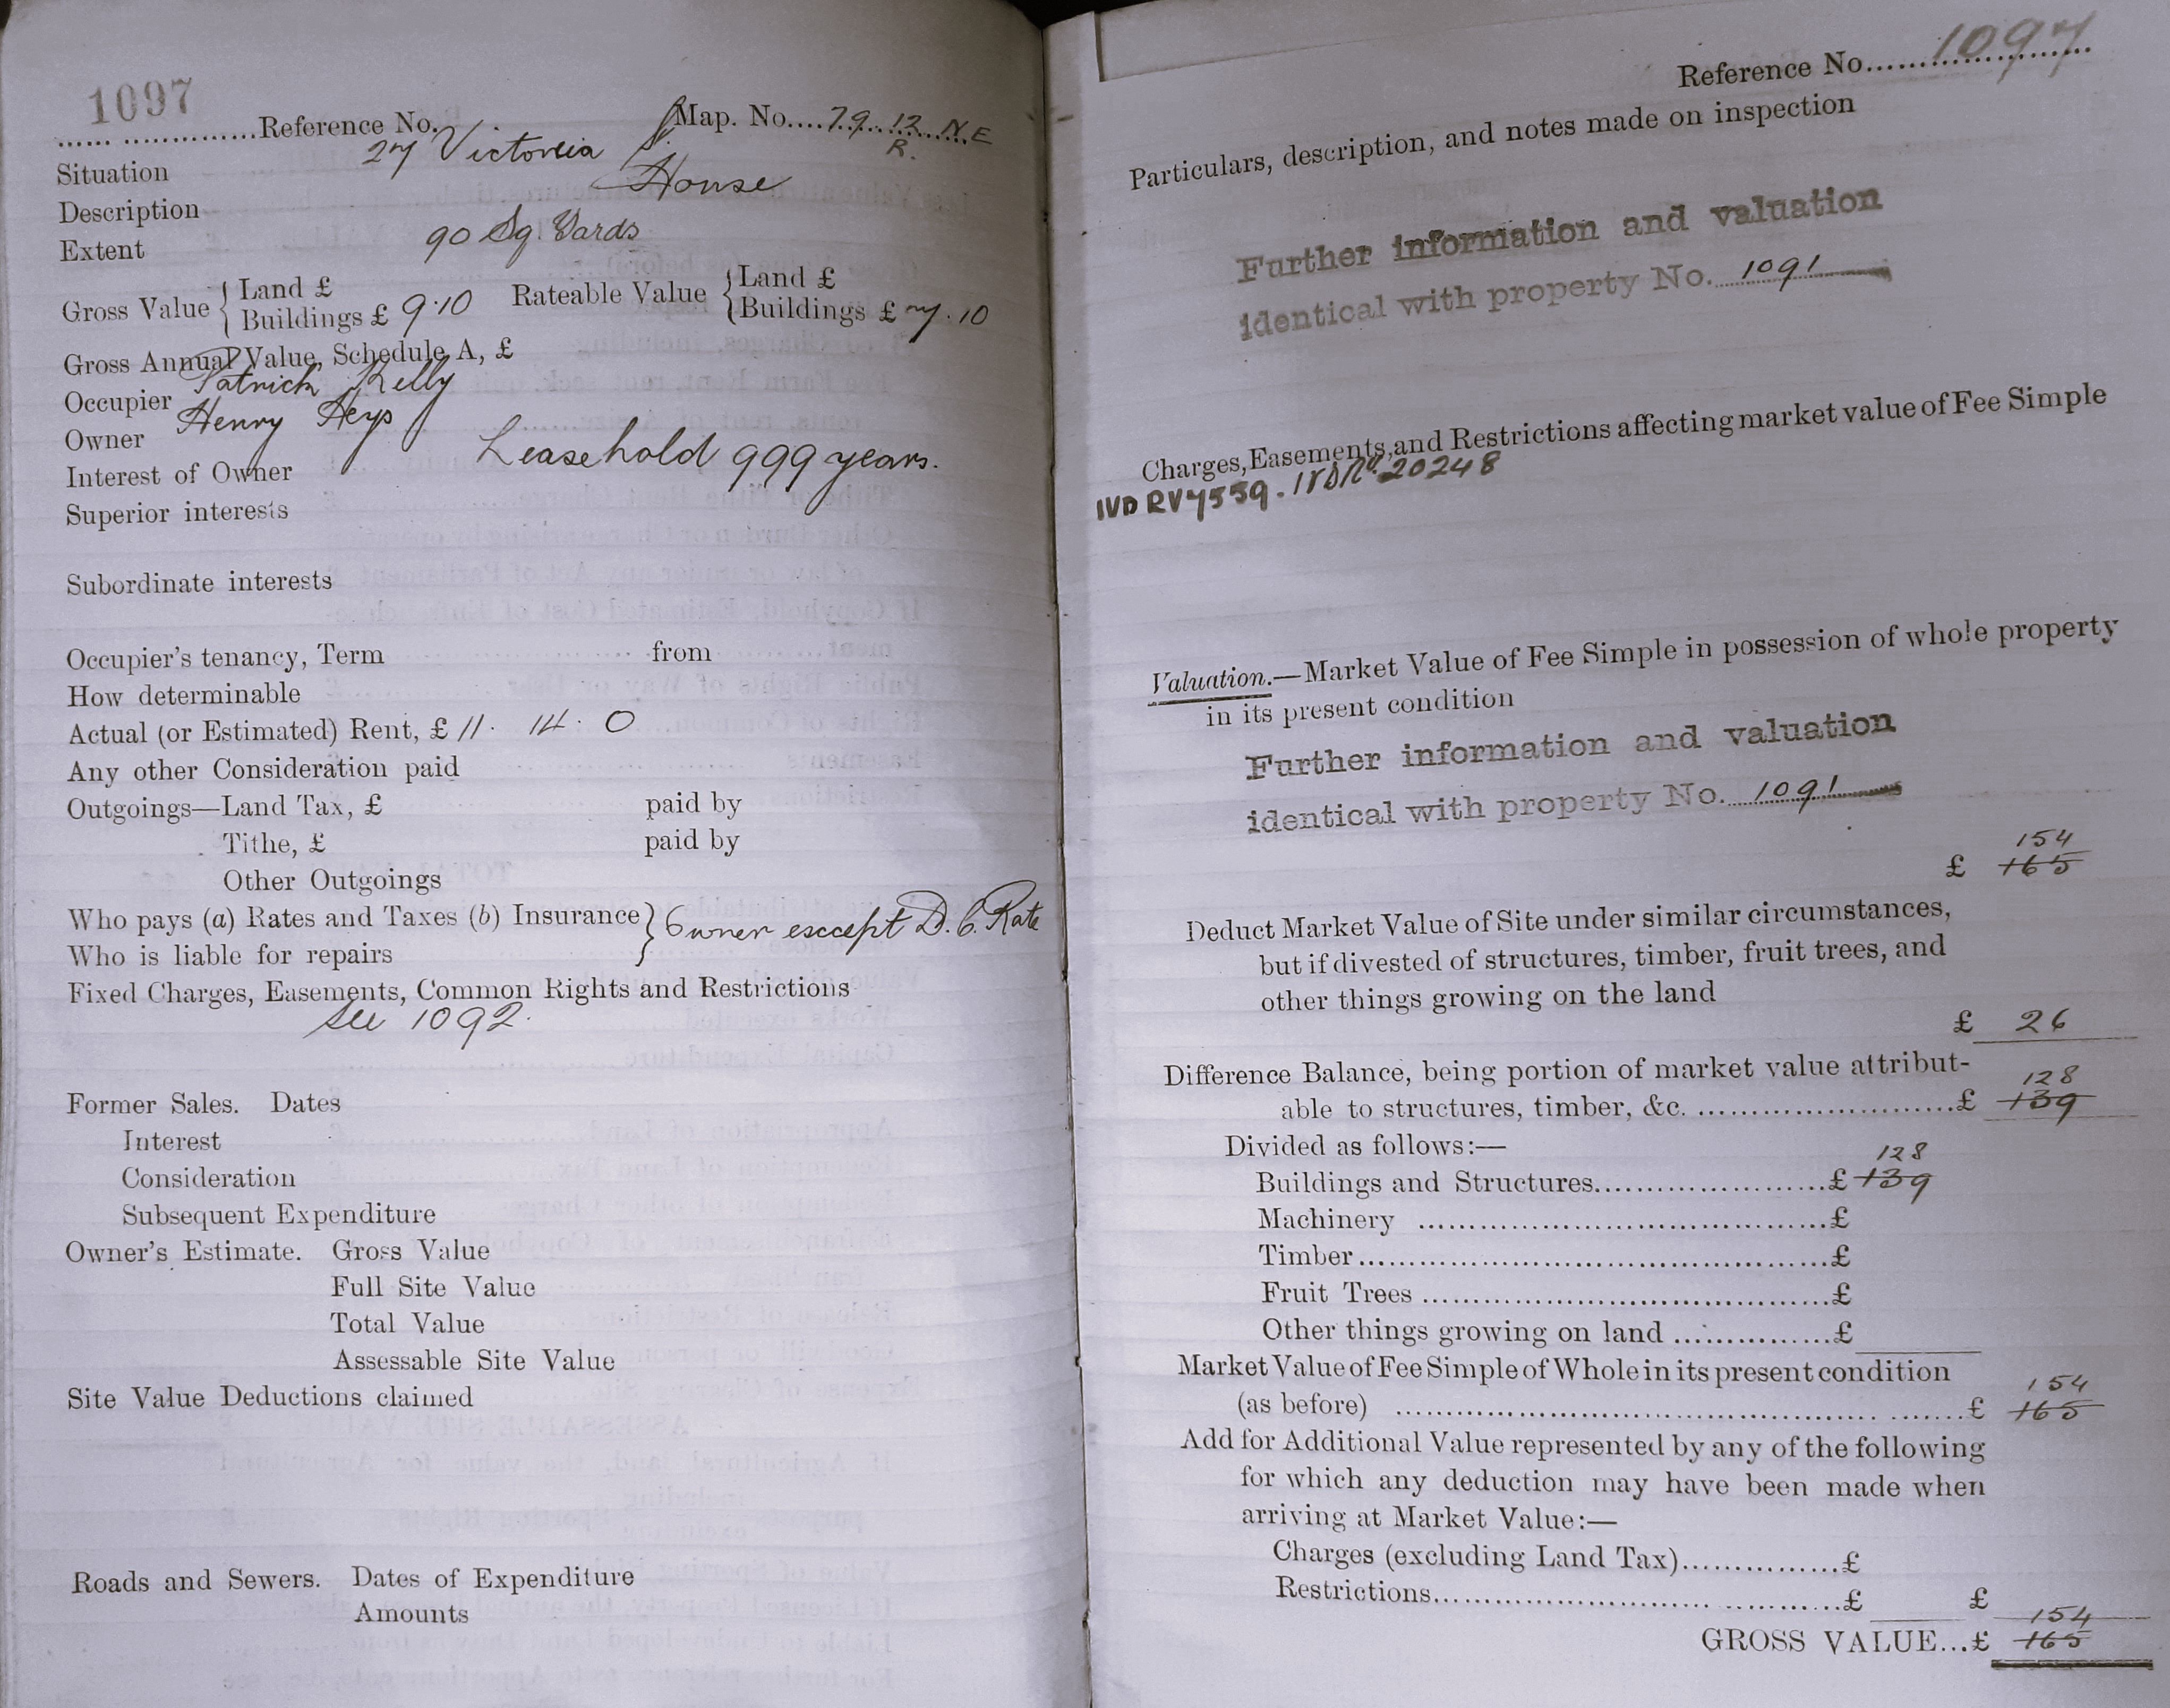 1097
Reference No. Map. No. 79. 12 N.E
R.
Situation 27 Victoria St.
Description House
Extent 90 Sq. Yards
Gross Value { Land £ Rateable Value { Land £
Buildings £ 9.10 Buildings £ 7.10
Gross Annual Value, Schedule A, £
Occupier Patrick Kelly
Owner Henry Heys
Interest of Owner Leasehold 999 years.
Superior interests
Subordinate interests
Occupier's tenancy, Term from
How determinable
Actual (or Estimated) Rent, £ 11. 14. 0
Any other Consideration paid
Outgoings—Land Tax, £ paid by
Tithe, £ paid by
Other Outgoings
Who pays (a) Rates and Taxes (b) Insurance } Owner except D.C. Rate
Who is liable for repairs
Fixed Charges, Easements, Common Rights and Restrictions
See 1092.
Former Sales. Dates
Interest
Consideration
Subsequent Expenditure
Owner's Estimate. Gross Value
Full Site Value
Total Value
Assessable Site Value
Site Value Deductions claimed
Roads and Sewers. Dates of Expenditure
Amounts
Reference No. 1097
Particulars, description, and notes made on inspection
Further information and valuation
identical with property No. 1091
Charges, Easements, and Restrictions affecting market value of Fee Simple
IVD RV7559. 20248
Valuation.—Market Value of Fee Simple in possession of whole property
in its present condition
Further information and valuation
identical with property No. 1091
154
£ 165
Deduct Market Value of Site under similar circumstances,
but if divested of structures, timber, fruit trees, and
other things growing on the land
£ 26
Difference Balance, being portion of market value attribut-
128
able to structures, timber, &c. £ 139
Divided as follows:—
128
Buildings and Structures £ 139
Machinery £
Timber £
Fruit Trees £
Other things growing on land £
Market Value of Fee Simple of Whole in its present condition
154
(as before) £ 165
Add for Additional Value represented by any of the following
for which any deduction may have been made when
arriving at Market Value:—
Charges (excluding Land Tax) £
Restrictions £ £
154
GROSS VALUE... £ 165